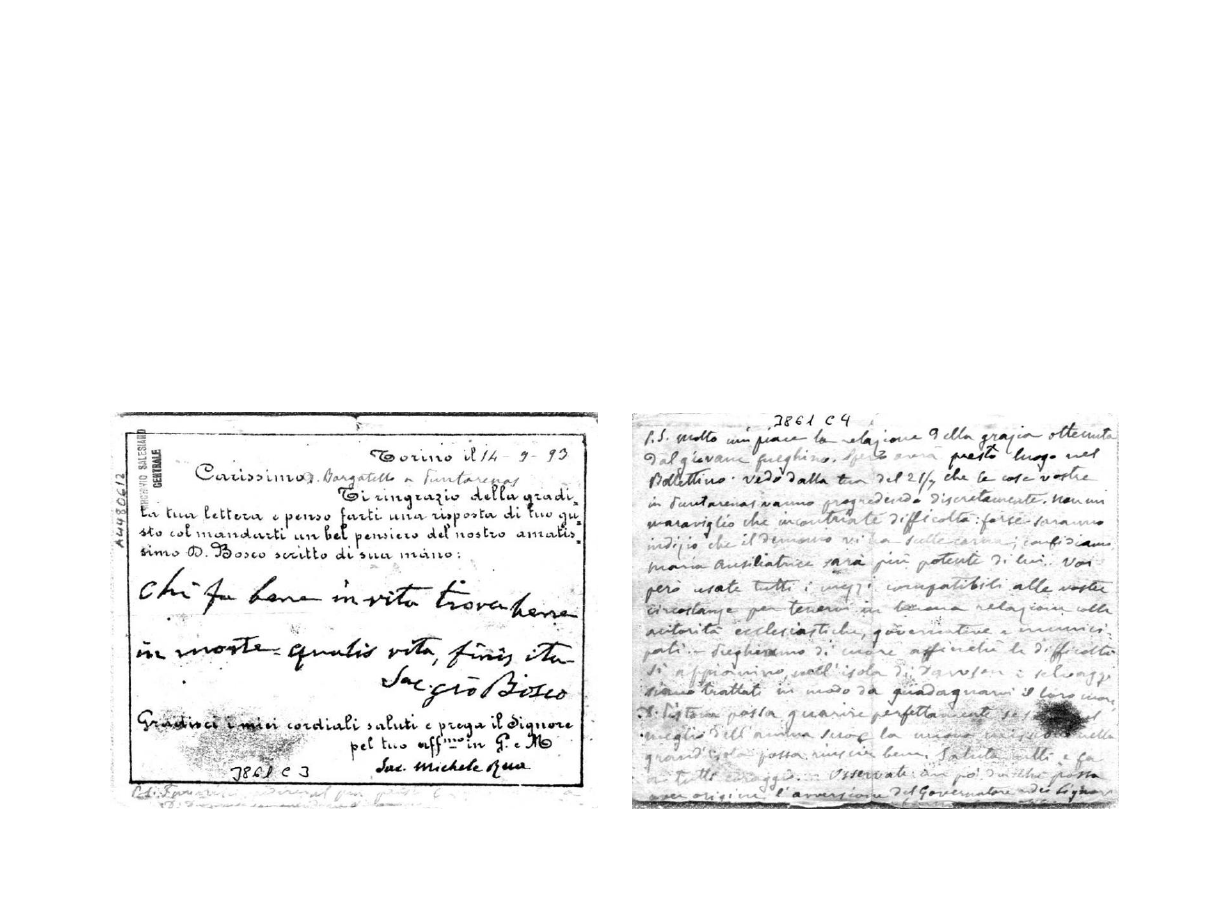 ARCHIVIO SALESIANO
CENTRALE
A4480612
Torino il 14-9-93
Carissimo D. Borgatello a Puntarenas
Ti ringrazio della gradi-
ta tua lettera e penso farti una risposta di tuo gu-
sto col mandarti un bel pensiero del nostro amatis-
simo D. Bosco scritto di sua mano:
Chi fa bene in vita trova bene
in morte = qualis vita, finis ita
Sac. Gio Bosco
Gradisci i miei cordiali saluti e prega il Signore
pel tuo aff.mo in G. e M
Sac. Michele Rua
3861 C 3
3861 C 4
P.S. Molto mi piace la relazione della grazia ottenuta
dal giovane fueghino. Spero avrà presto luogo nel
Bollettino. Vedo dalla tua del 21/7 che le cose vostre
in Puntarenas vanno progredendo discretamente. Non mi
maraviglio che incontriate difficoltà: forse saranno
indizio che il demonio vi ha sulle corna; confidiamo
Maria Ausiliatrice sarà più potente di lui. Voi
però usate tutti i mezzi compatibili alle vostre
circostanze per tenervi in buona relazione colle
autorità ecclesiastiche, governative e munici-
pali. Pregheremo di cuore affinchè le difficoltà
si appianino nell'isola di Dawson e selvaggi
siano trattati in modo da guadagnarvi il loro cuore
possa guarire perfettamente
meglio dell'anima sua, la nuova nella
grand'isola possa riuscir bene. Saluta tutti e fa
a tutti coraggio. Osservate un po' da che possa
aver origine l'avversione del Governatore e dei Signori